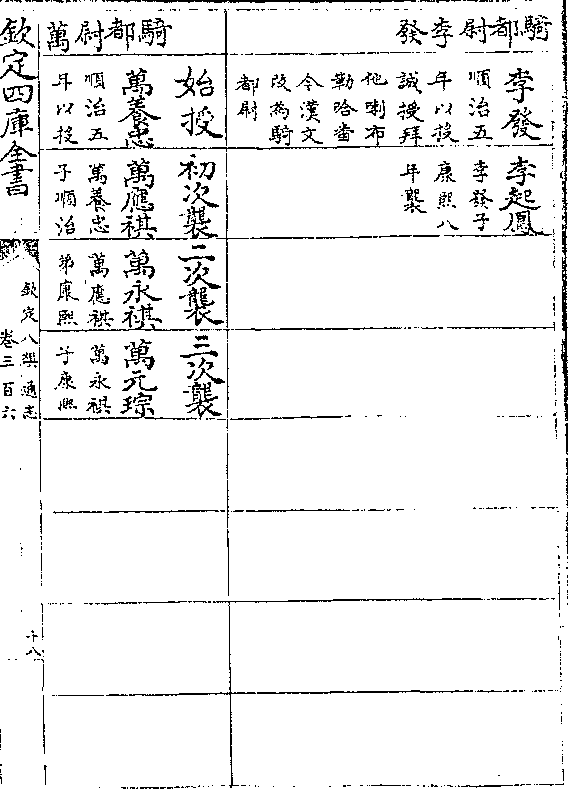 騎都尉李發
李發
順治五
年以投
誠授拜
他喇布
勒哈畨
今漢文
改為騎
都尉
李起鳳
李發子
康熙八
年襲
騎都尉萬
始授
萬養忠
順治五
年以投
初次襲
萬應祺
萬養忠
子順治
二次襲
萬永祺
萬應祺
弟康熙
三次襲
萬元琮
萬永祺
子康熙
欽定四庫全書
欽定八旗通志
卷三百六
十八